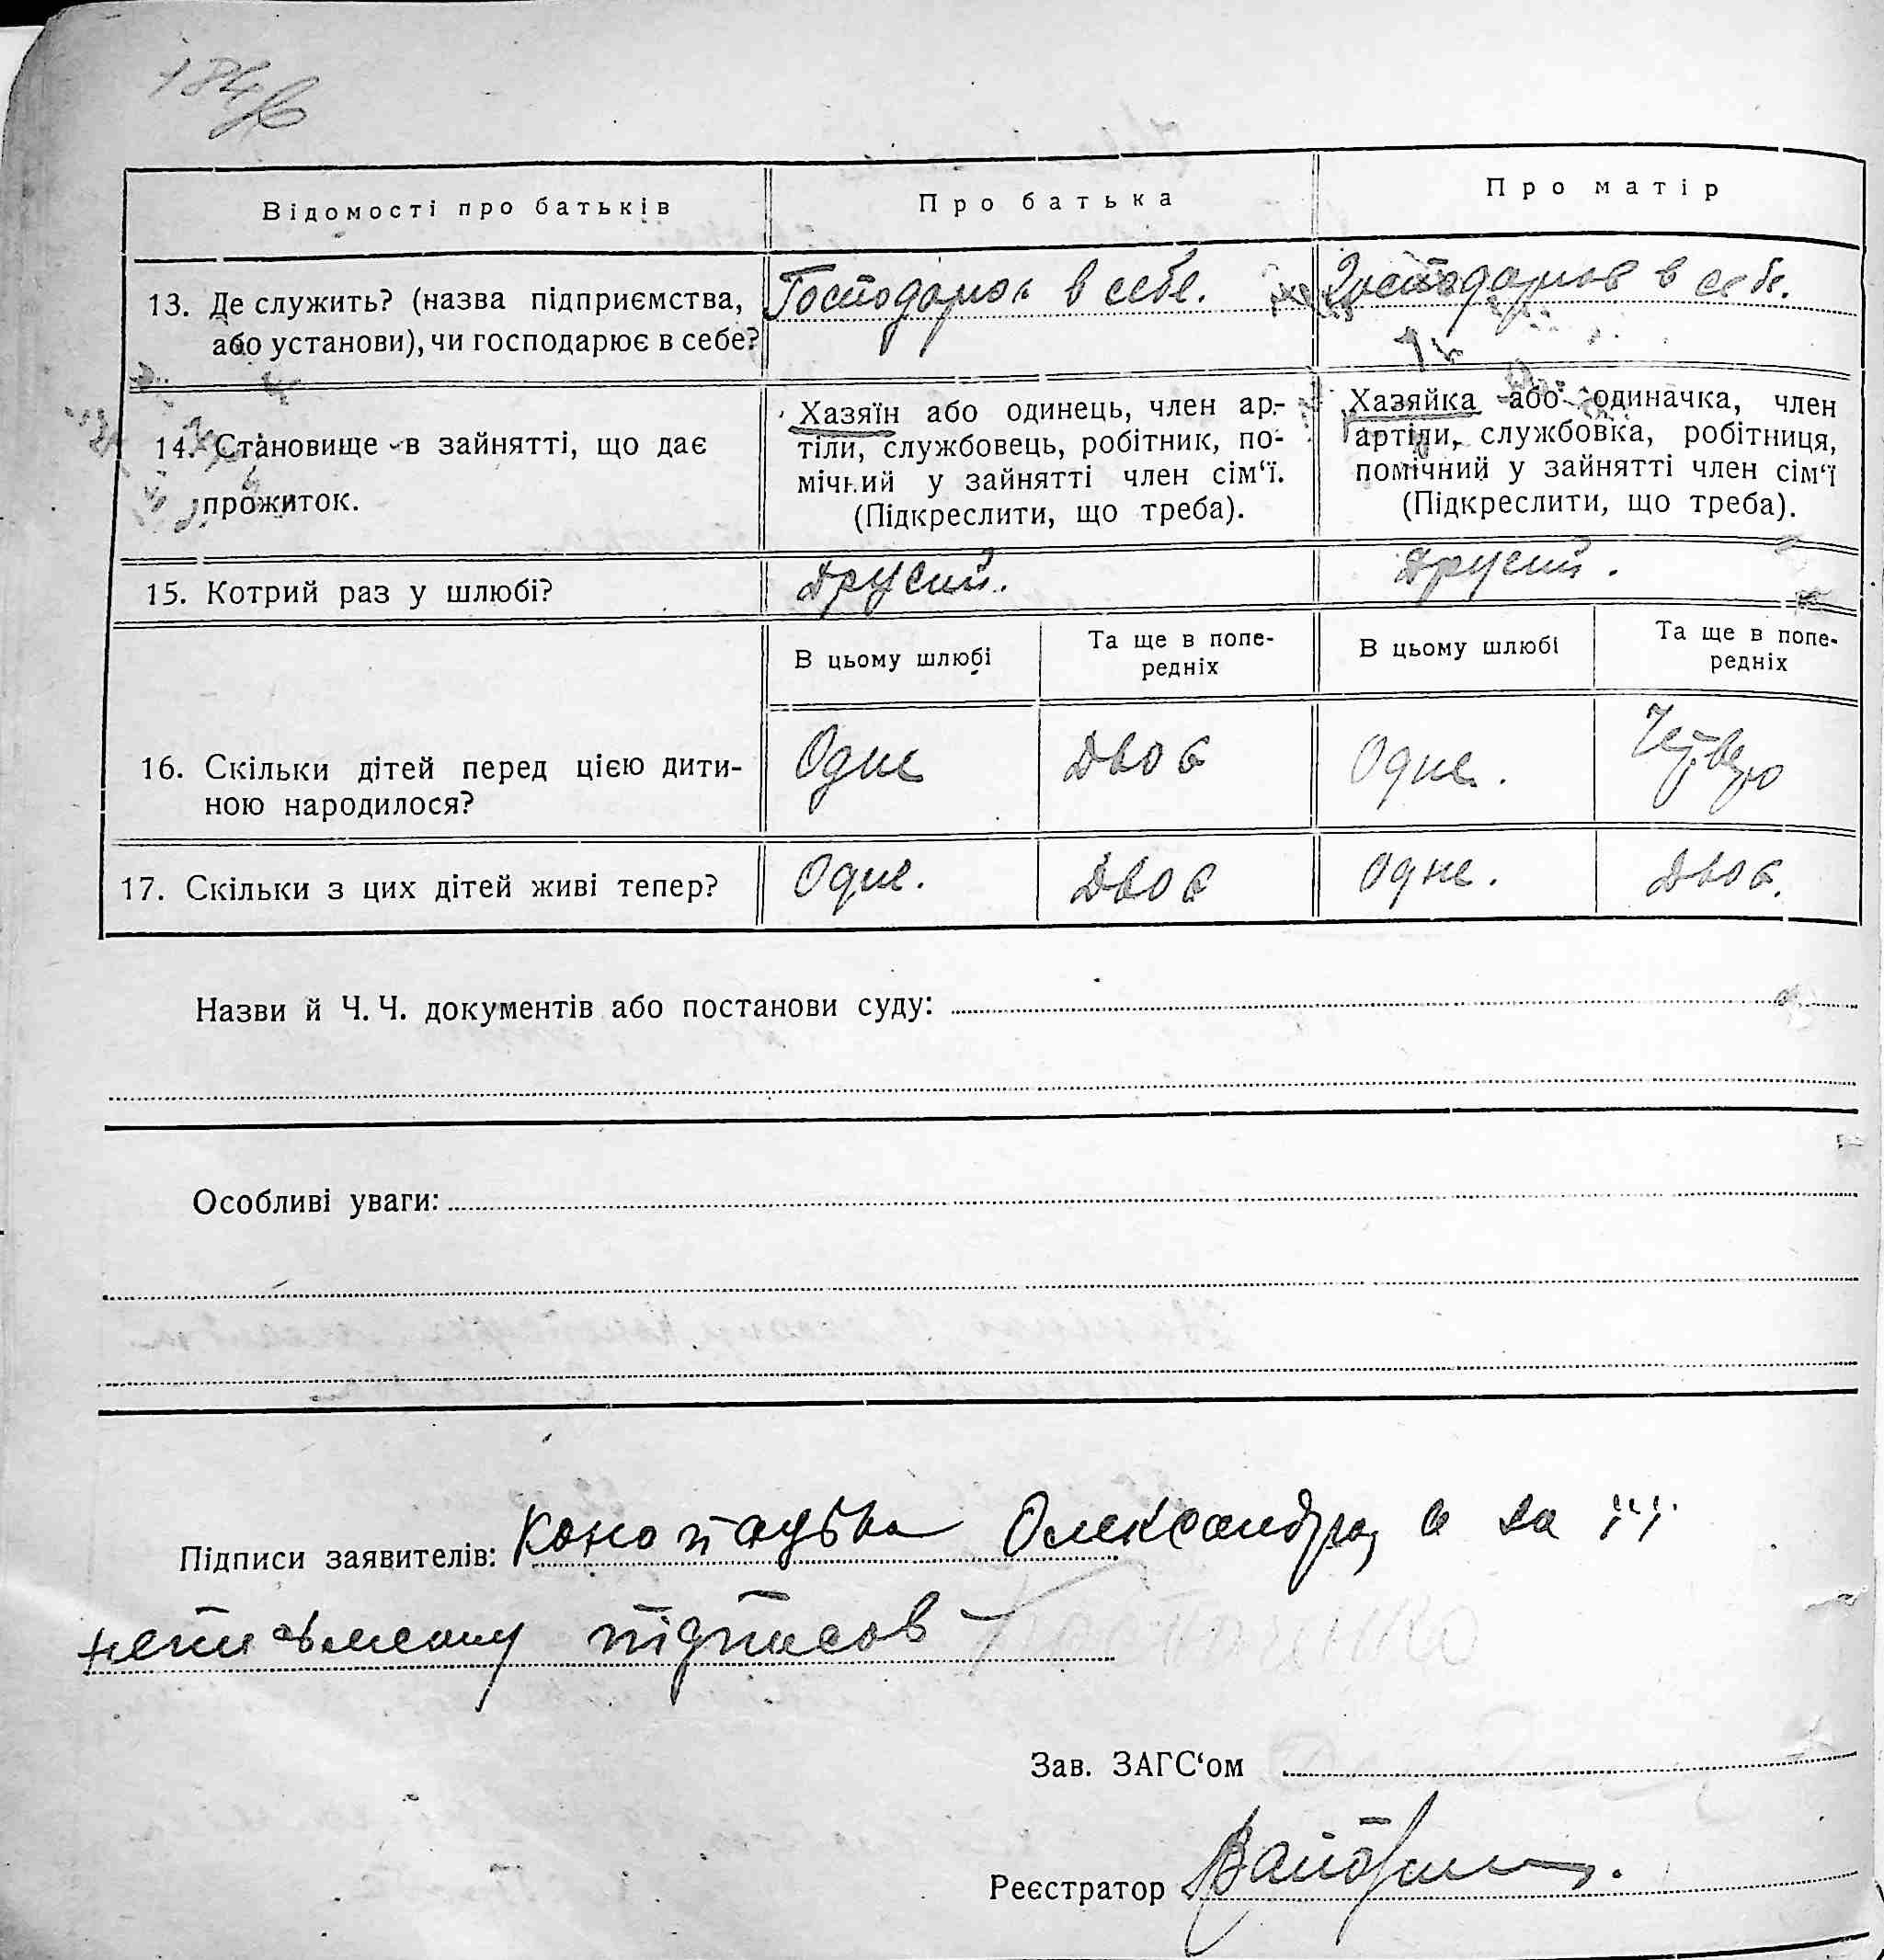 Відомості про батьків
Про батька
Про матір
13. Де служить? (назва підприємства,
або установи), чи господарює в себе?
Господарює в себе.
Господарює в себе.
14. Становище в зайнятті, що дає
прожиток.
Хазяїн або одинець, член ар-
тіли, службовець, робітник, по-
мічний у зайнятті член сім'ї.
(Підкреслити, що треба).
Хазяйка або одиначка, член
артіли, службовка, робітниця,
помічний у зайнятті член сім'ї
(Підкреслити, що треба).
15. Котрий раз у шлюбі?
Другий.
Другий.
В цьому шлюбі
Та ще в попе-
редніх
В цьому шлюбі
Та ще в попе-
редніх
16. Скільки дітей перед цією дити-
ною народилося?
Одне
Двоє
Одне.
Четверо
17. Скільки з цих дітей живі тепер?
Одне.
Двоє
Одне.
Двоє.
Назви й Ч. Ч. документів або постанови суду:
Особливі уваги:
Підписи заявителів: Олександра, а за її
неписьмену підписов
Зав. ЗАГС'ом
Реєстратор